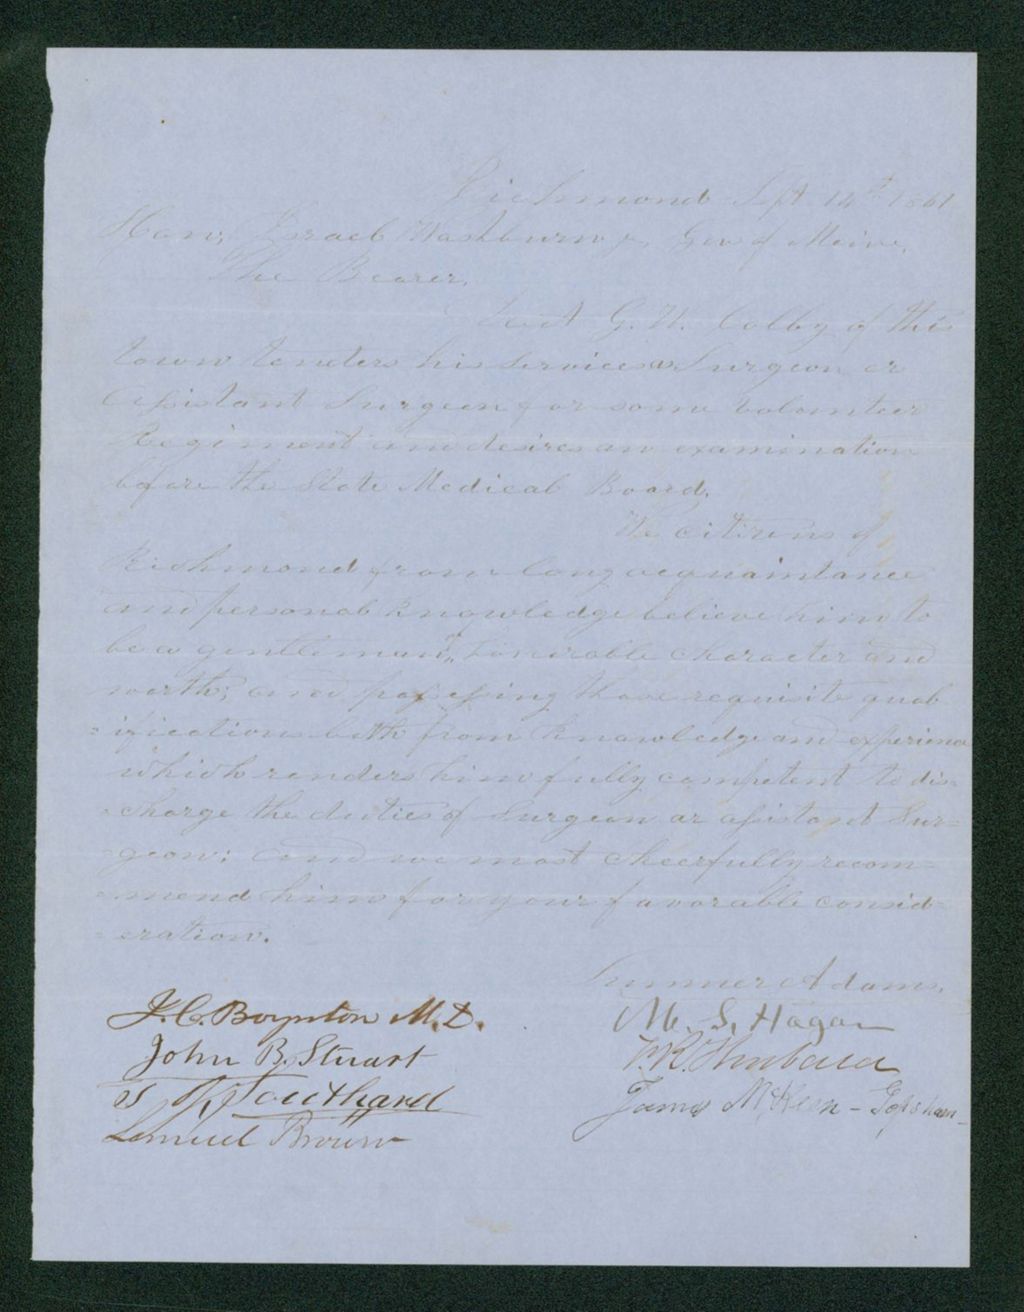 Richmond Sept 14th 1861
Hon, Israel Washburn jr, Gov of Maine,
The Bearer,
G. H. Colby of this
town tenders his services as Surgeon or
Assistant Surgeon for some volunteer
Regiment and desires an examination
before the State Medical Board.
We citizens of
Richmond from long acquaintance
and personal knowledge believe him to
be a gentleman of honorable character and
worth; and possessing those requisite qual
=ifications both from knowledge and experience
which renders him fully competent to dis=
=charge the duties of Surgeon or assistant Sur=
=geon: and we most cheerfully recom=
=mend him for your favorable consid=
=eration.
Sumner Adams.
J. C. Boynton M.D.
John B. Stuart
T Southard
Samuel Brown
M. S. Hagar
James McKeen - Topsham